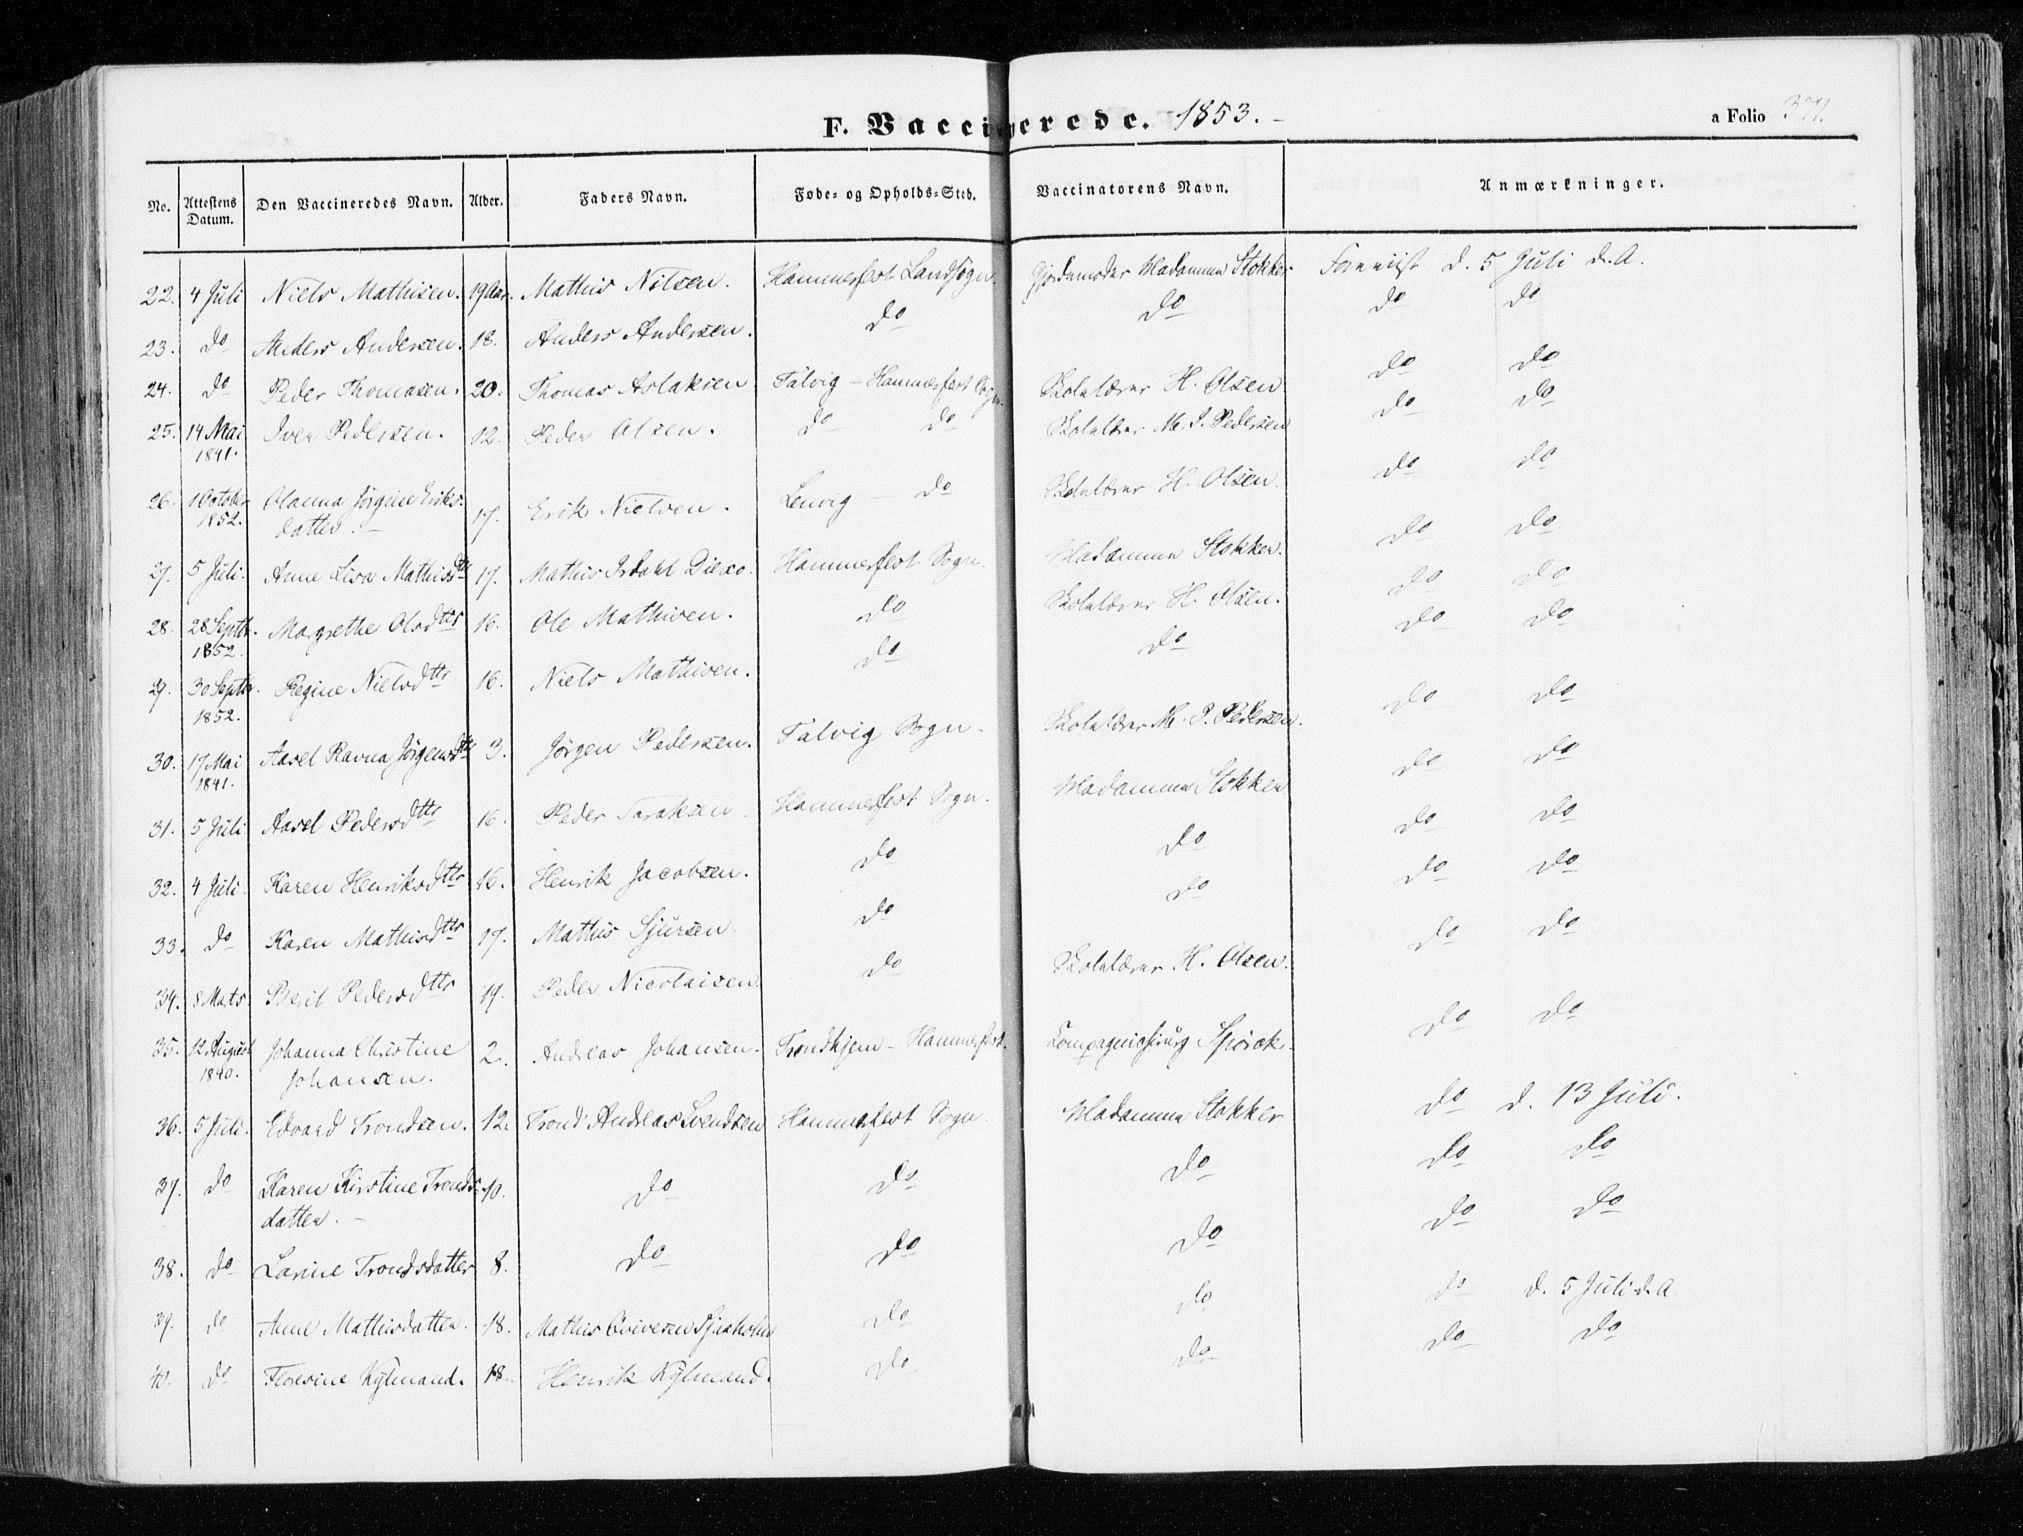 F. Vaccinerede. 1853.-
a Folio 371.
No. Attestens Datum. Den Vaccineredes Navn. Alder. Faders Navn. Føde- og Opholds-Sted. Vaccinatorens Navn. Anmærkninger.
22. 4 Juli Niels Mathisen. 19 Aar. Mathis Nilsen. Hammerfest Landsogn. Gjordemoder Madamme Stokker Foreviist d. 5 Juli d. A.
23. do Anders Andersen. 18. Anders Andersen. do do do do
24. do Peder Thomasen. 20. Thomas Aslaksen Talvig - Hammerfest Sogn. Skolelærer H. Olsen do do
25. 14 Mai 1841. Iver Pedersen. 12. Peder Olsen. do do Skolelærer M. P. Pedersen do do
26. 1 October 1852. Olanna Jørgine Eriks-
datter.- 17. Erik Nielsen. Lenvig - do Skolelærer H. Olsen. do do
27. 5 Juli. Anne Lisa Mathisdtr 17. Mathis Isdahl Hammerfest Sogn. Madamme Stokker. do do
28. 28 Septbr. 1852. Margrethe Olsdttr 16. Ole Mathisen. do Skolelærer H. Olsen. do do
29. 30 Septbr. 1852. Regine Nielsdttr 16. Niels Mathisen. do do do do
30. 17 Mai 1841. Aasel Ravna Jørgensdttr 3. Jørgen Pedersen. Talvig Sogn. Skolelærer M. P. Pedersen. do do
31. 5 Juli Aasel Pedersdttr 16. Peder Hammerfest Sogn. Madamme Stokker do do
32. 4 Juli. Karen Henriksdttr 16. Henrik Jacobsen. do do do do
33. do Karen Mathisdttr 17. Mathis Sjursen. do do do do
34. 8 Marts Berit Pedersdttr 19. Peder Nicolaisen. do Skolelærer H. Olsen. do do
35. 12 August 1840. Johanna Christine
Johansen. 2. Andreas Johansen. Trondhjem - Hammerfest. Compagniechirurg do do
36. 5 Juli. Edvard Trondsen. 12. Trond Andreas Svendsen Hammerfest Sogn. Madamme Stokker do d. 13 Juli.
37. do Karen Kirstine Tronds-
datter.- 10. do do do do do
38. do Larine Trondsdatter 8. do do do do do
39. do Anne Mathisdatter. 18. Mathis do do do d. 5 Juli d. A
40. do Floresine Kylmand. 18. Henrik Kylmand. do do do do